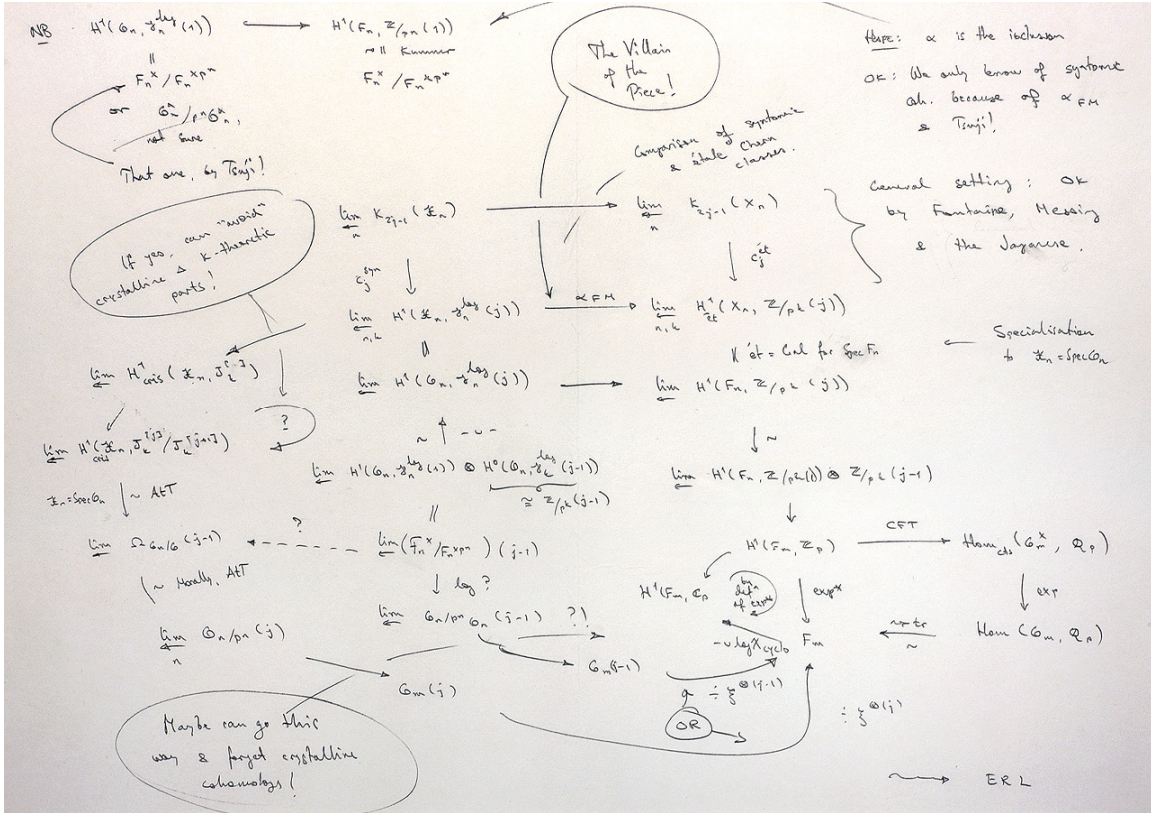 NB H¹(𝒪ₙ, 𝒮ₙˡᵒᵍ(1)) ⟶ H¹(Fₙ, ℤ/pⁿ(1))
∥ ~ ∥ Kummer
Fₙˣ/Fₙˣᵖⁿ Fₙˣ/Fₙˣᵖⁿ
or 𝒪ₙˣ/pⁿ𝒪ₙˣ,
not sure
That one, by Tsuji!
The Villain
of the
Piece!
Hope: α is the inclusion
OK: We only know of syntomic
coh. because of α FM
& Tsuji!
Comparison of syntomic
& étale Chern
classes.
General setting: OK
by Fontaine, Messing
& the Japanese.
If yes, can "avoid"
crystalline & K-theoretic
parts!
lim K₂ⱼ₋₁(𝔛ₙ) ⟶ lim K₂ⱼ₋₁(Xₙ)
n n
cⱼˢʸⁿ cⱼᵉ́ᵗ
lim H¹(𝔛ₙ, 𝒮ₙˡᵒᵍ(j)) α FM lim H¹ét(Xₙ, ℤ/pᵏ(j))
n,k n,k
∥ ét = Gal for Spec Fₙ
Specialisation
to 𝔛ₙ = Spec 𝒪ₙ
lim H¹cris(𝔛ₙ, Jₖ[ʲ])
lim H¹(𝒪ₙ, 𝒮ₙˡᵒᵍ(j)) ⟶ lim H¹(Fₙ, ℤ/pᵏ(j))
?
lim H¹cris(𝔛ₙ, Jₖ[ʲ]/Jₖ[ʲ⁺¹])
~ ↑ -∪- ↓ ~
lim H¹(𝒪ₙ, 𝒮ₙˡᵒᵍ(1)) ⊗ H⁰(𝒪ₙ, 𝒮ₖˡᵒᵍ(j-1)) lim H¹(Fₙ, ℤ/pᵏ(1)) ⊗ ℤ/pᵏ(j-1)
≅ ℤ/pᵏ(j-1)
𝔛ₙ = Spec 𝒪ₙ ↓ ~ A&T
lim Ω𝒪ₙ/𝒪(j-1) ? lim(Fₙˣ/Fₙˣᵖⁿ)(j-1)
H¹(Fₘ, ℤₚ) CFT Homcts(𝒪ₘˣ, ℚₚ)
~ Morally, A&T
↓ log?
H¹(Fₘ, ℂₚ
by
defⁿ
of exp*
exp*
exp
lim 𝒪ₙ/pⁿ𝒪ₙ(j-1) ?!
lim 𝒪ₙ/pⁿ(j)
n
-∪ log χcyclo Fₘ ~ Hom(𝒪ₘ, ℚₚ)
𝒪ₘ(j-1)
÷ ξ⊗(j-1)
𝒪ₘ(j)
OR
÷ ξ⊗(j)
Maybe can go this
way & forget crystalline
cohomology!
⟿ ERL